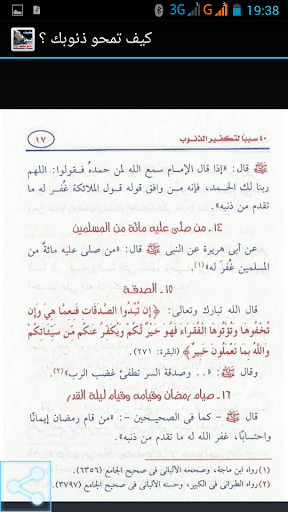 3G G 19:38
كيف تمحو ذنوبك ؟
٤٠ سببا لتكفير الذنوب
١٧
ﷺ قال: «إذا قال الإمام سمع الله لمن حمده فـقولوا: اللهم
ربنا لك الحـمد، فإنه من وافق قوله قول الملائكة غُفر له ما
تقدم من ذنبه».
١٤ - من صلى عليه مائة من المسلمين
عن أبي هريرة عن النبي ﷺ قال: «من صلى عليه مائةٌ من
المسلمين غُفرَ له»(١).
١٥ - الصدقة
قال الله تبارك وتعالى: ﴿إِن تُبْدُوا الصَّدَقَاتِ فَنِعِمَّا هِيَ وَإِن
تُخْفُوهَا وَتُؤْتُوهَا الْفُقَرَاءَ فَهُوَ خَيْرٌ لَّكُمْ وَيُكَفِّرُ عَنكُم مِّن سَيِّئَاتِكُمْ
وَاللَّهُ بِمَا تَعْمَلُونَ خَبِيرٌ﴾ (البقرة: ٢٧١).
قال ﷺ: «.. وصدقة السر تطفئ غضب الرب»(٢).
١٦ - صيام رمضان وقيامه وقيام ليلة القدر
قال ﷺ - كما فى الصحيحين -: «من قام رمضان إيمانًا
واحتسابا، غفر الله له ما تقدم من ذنبه».
(١) رواه ابن ماجة، وصححه الألبانى فى صحيح الجامع (٦٣٥٦)
(٢) رواه الطبرانى فى الكبير، وحسنه الألبانى فى صحيح الجامع (٣٧٩٧)